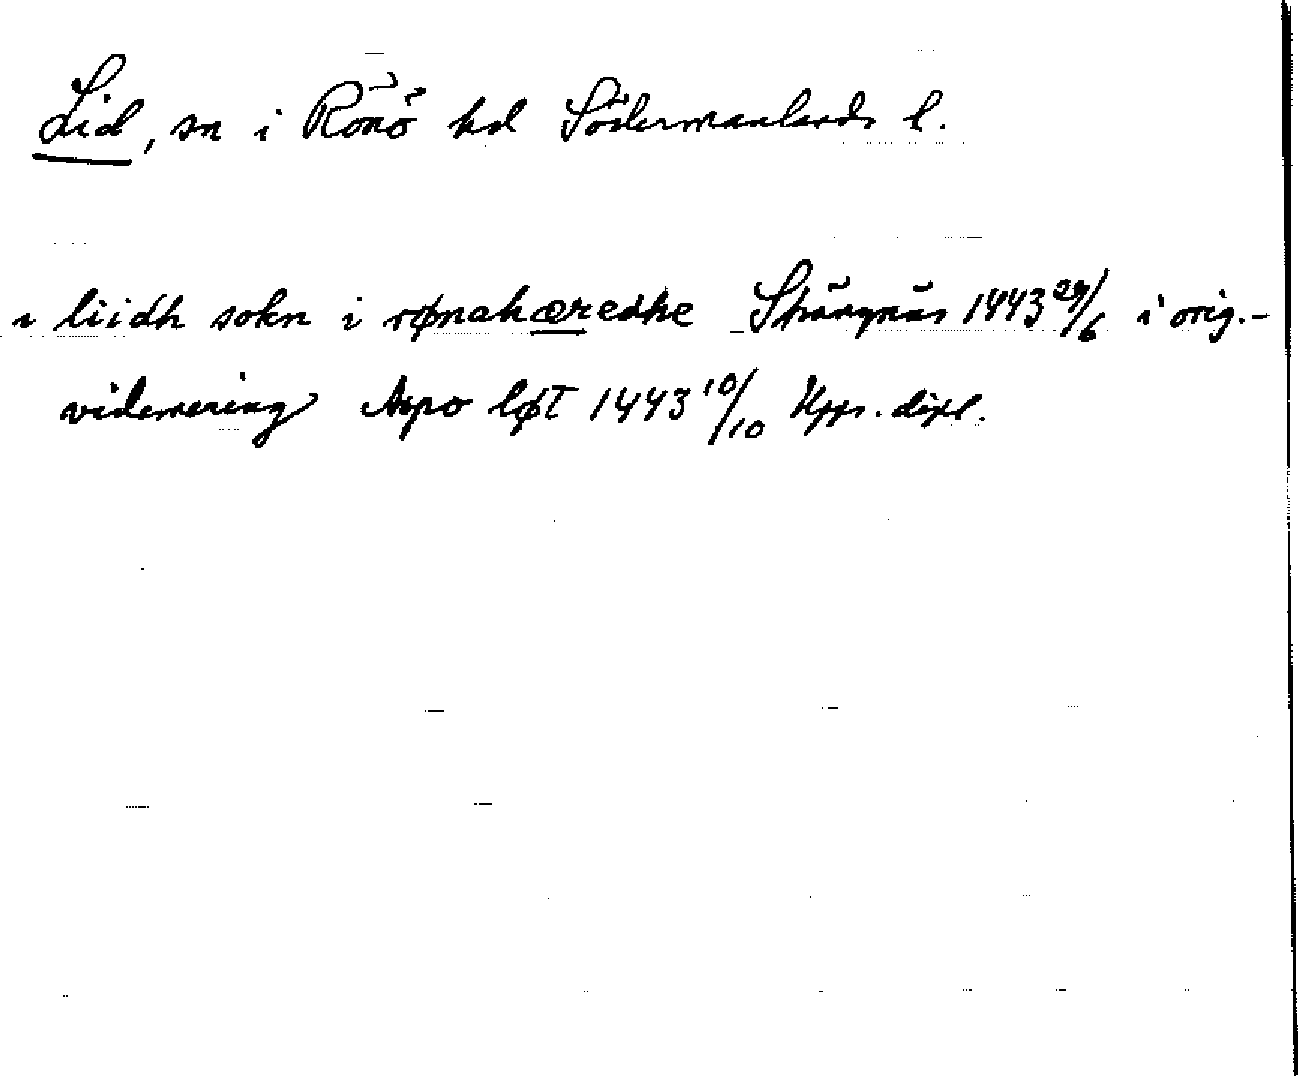 Lid, sn i Rönö hd Södermanlands l.
i liidh sokn i rønahæredhe Strängnäs 1443 29/6 i orig.-
vidimering Aspo løt 1443 10/10 Upps. dipl.